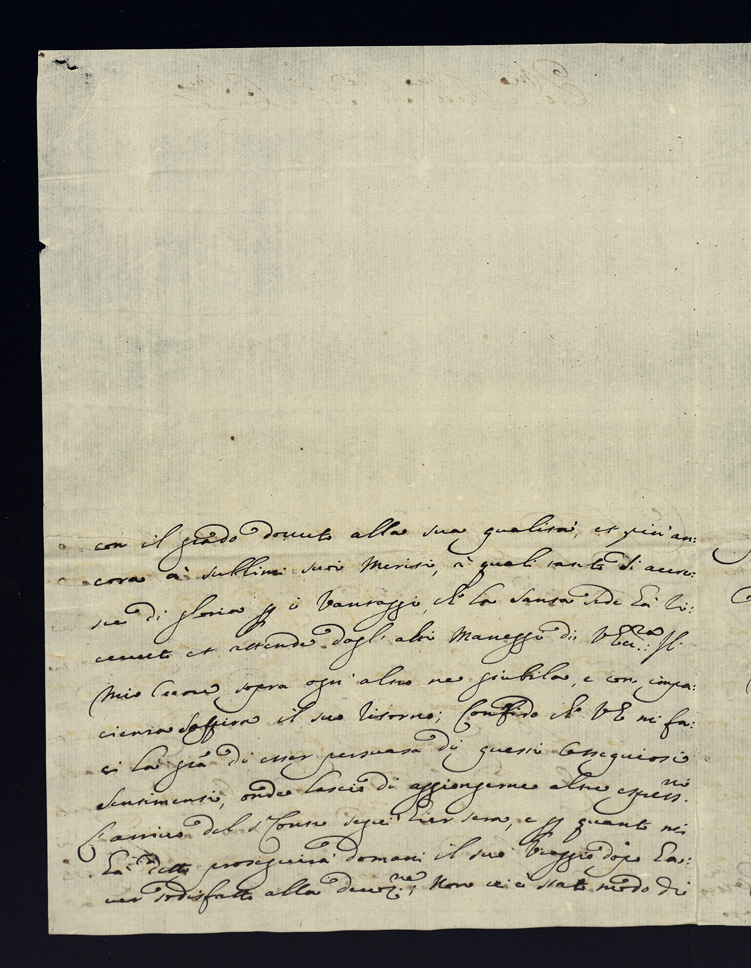 con il grado dovuto alla sua qualità, et più an:
cora à sublimi suoi Meriti, à quali tanto si accre:
sce di gloria p i Vantaggi, che la Santa Sede hà ri:
ceuuto et attende dagl' altri Maneggi di VEcc.za Il
mio Cuore sopra ogn' altro ne giubila, e con impa:
cienza sospira il suo ritorno; Confido che VE mi fa:
ci la già di esser persuasa di questi ossequiosi
sentimenti, onde lascio di aggiongerne altre espress.ni
L'arrivo del s.r Conte seguì hier sera, e p quanto mi
hà detto proseguirà domani il suo Viaggio dopo ha:
ver sodisfatto alla devoz.ne; Non vi è stato modo di